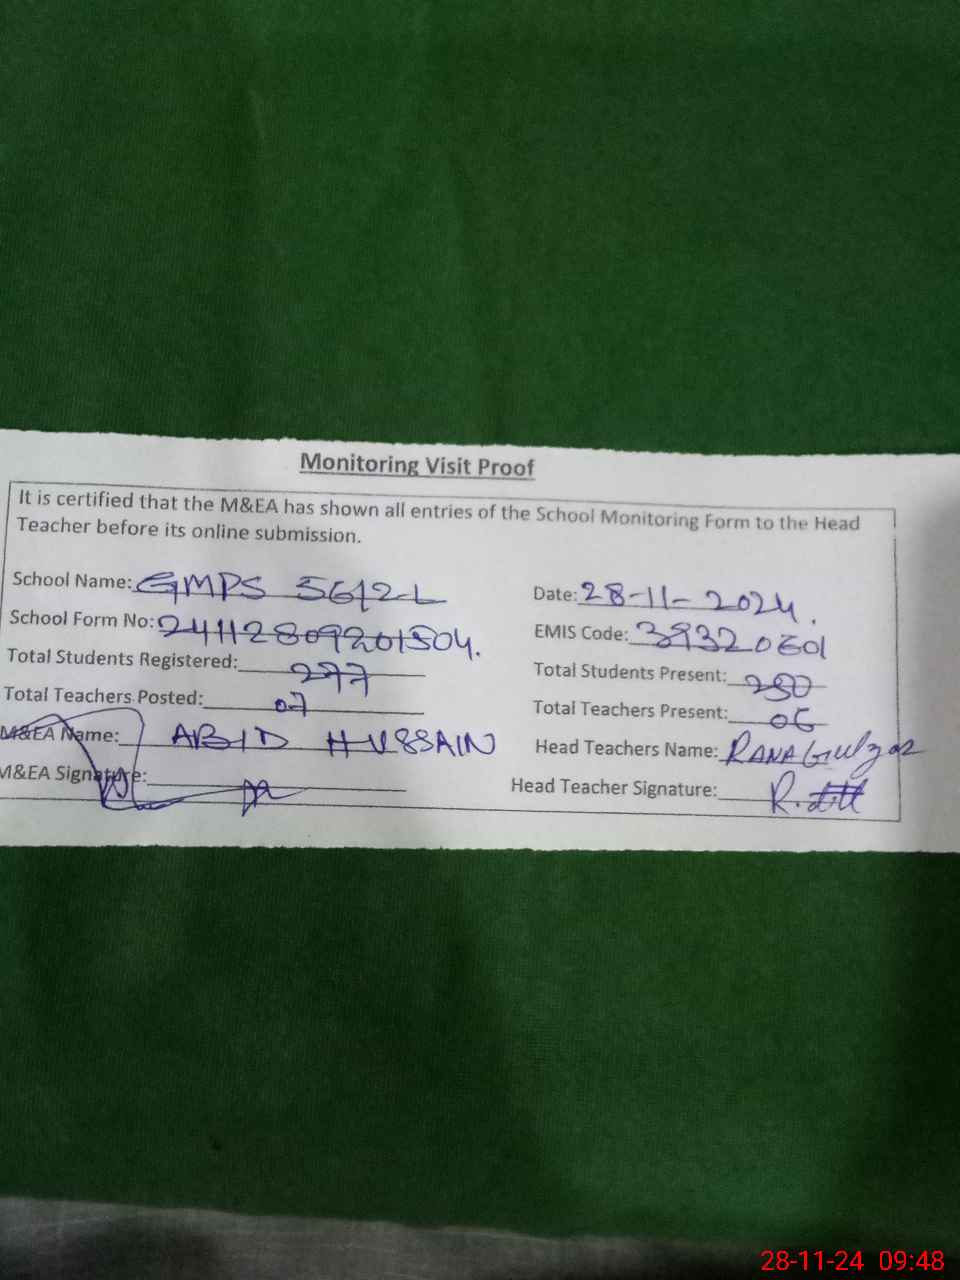 Monitoring Visit Proof
It is certified that the M&EA has shown all entries of the School Monitoring Form to the Head
Teacher before its online submission.
School Name: GMPS 56/2L Date: 28-11-2024.
School Form No: 24112809201504. EMIS Code: 39320601
Total Students Registered: 277 Total Students Present: 250
Total Teachers Posted: 07 Total Teachers Present: 06
M&EA Name: ABID HUSSAIN Head Teachers Name: RANA Gulzar
M&EA Signature: Head Teacher Signature:
28-11-24 09:48